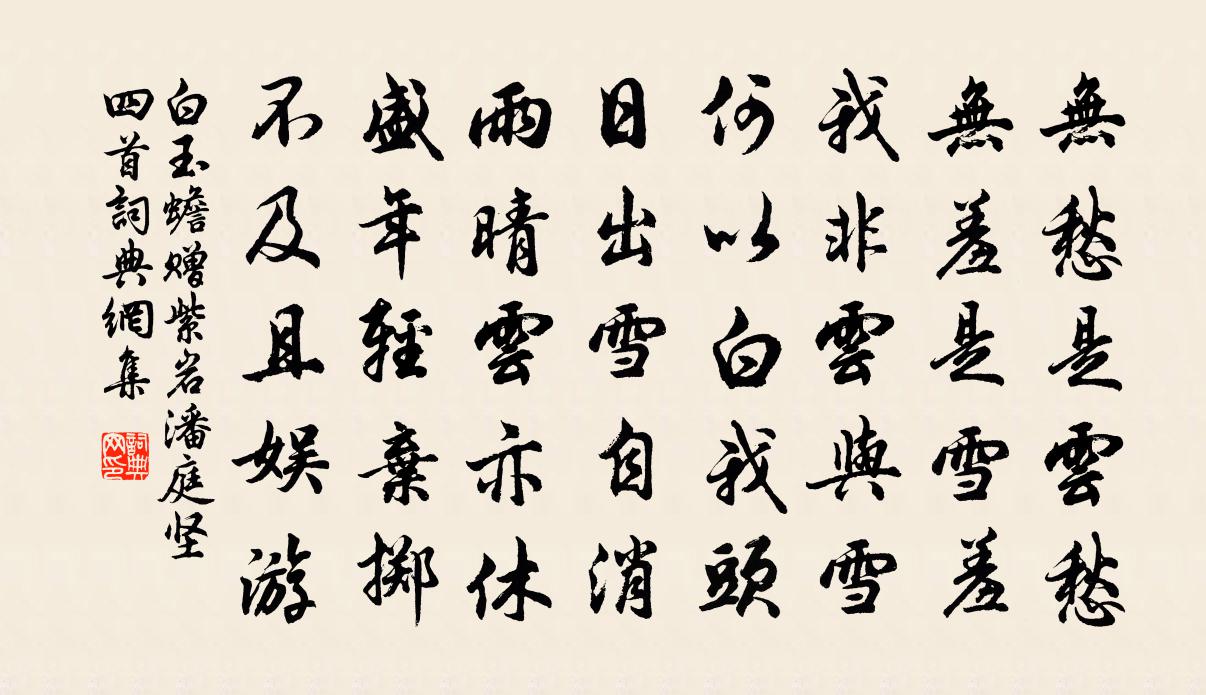 無愁是雲愁
無羞是雪羞
我非雲與雪
何以白我頭
日出雪自消
雨晴雲亦休
盛年輕棄擲
不及且娱游
白玉蟾赠紫岩潘庭坚
四首詞典網集
詞典网印